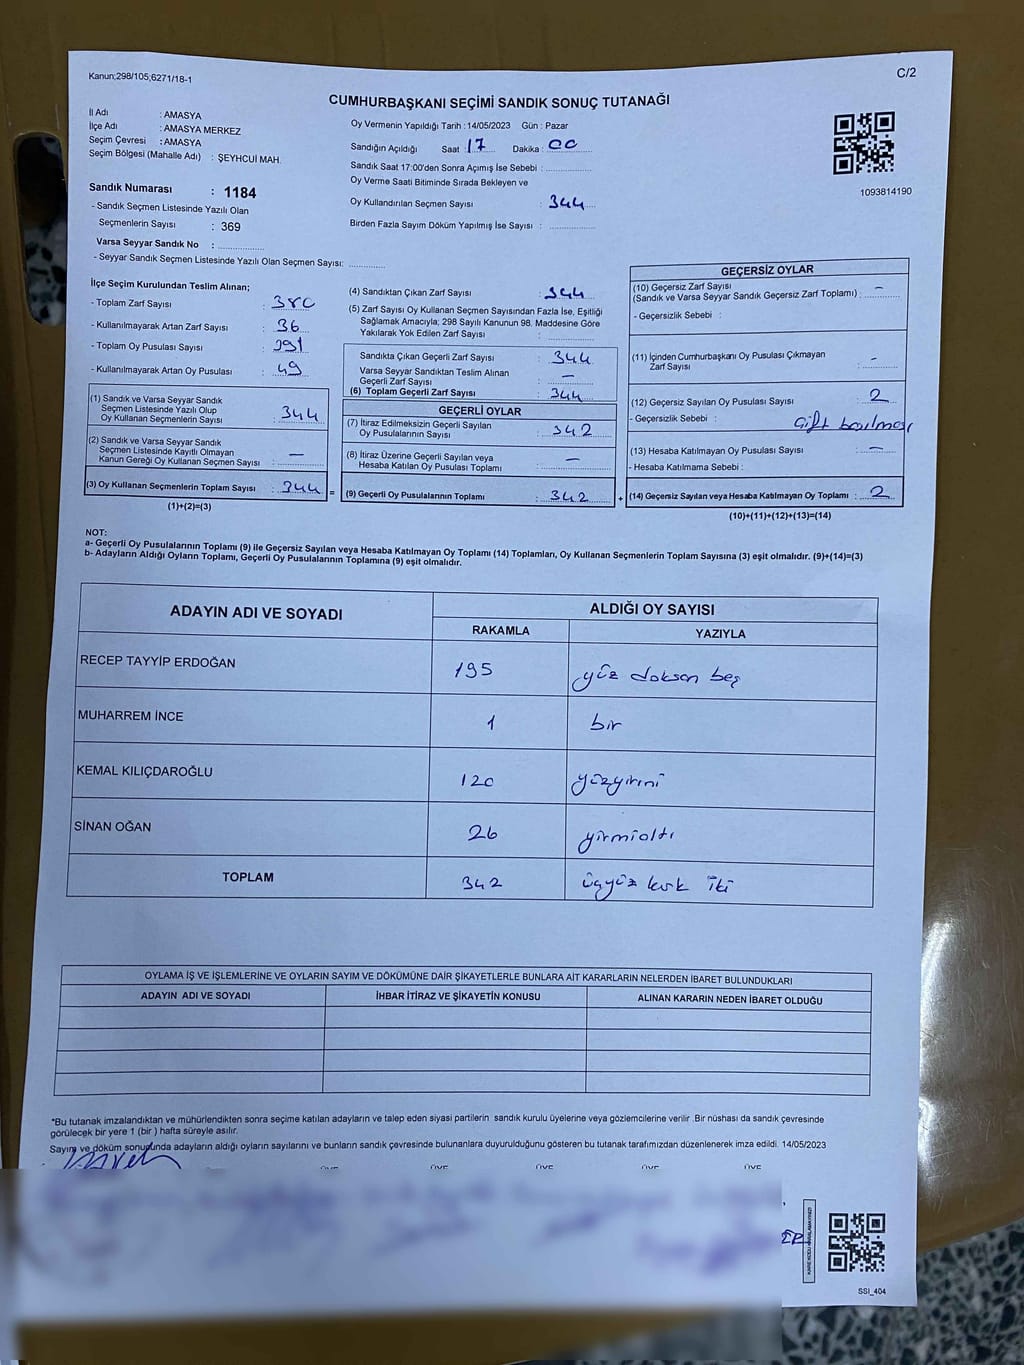 Kanun;298/105;6271/18-1
C/2
CUMHURBAŞKANI SEÇİMİ SANDIK SONUÇ TUTANAĞI
İl Adı : AMASYA
İlçe Adı : AMASYA MERKEZ
Seçim Çevresi : AMASYA
Seçim Bölgesi (Mahalle Adı) : ŞEYHCUİ MAH.
Sandık Numarası : 1184
- Sandık Seçmen Listesinde Yazılı Olan
Seçmenlerin Sayısı : 369
Varsa Seyyar Sandık No :
- Seyyar Sandık Seçmen Listesinde Yazılı Olan Seçmen Sayısı:
Oy Vermenin Yapıldığı Tarih : 14/05/2023 Gün : Pazar
Sandığın Açıldığı Saat : 17 Dakika : 00
Sandık Saat 17:00'den Sonra Açımış İse Sebebi :
Oy Verme Saati Bitiminde Sırada Bekleyen ve
Oy Kullandırılan Seçmen Sayısı : 344
Birden Fazla Sayım Döküm Yapılmış İse Sayısı :
1093814190
İlçe Seçim Kurulundan Teslim Alınan;
- Toplam Zarf Sayısı : 380
- Kullanılmayarak Artan Zarf Sayısı : 36
- Toplam Oy Pusulası Sayısı : 391
- Kullanılmayarak Artan Oy Pusulası : 49
(1) Sandık ve Varsa Seyyar Sandık
Seçmen Listesinde Yazılı Olup
Oy Kullanan Seçmenlerin Sayısı : 344
(2) Sandık ve Varsa Seyyar Sandık
Seçmen Listesinde Kayıtlı Olmayan
Kanun Gereği Oy Kullanan Seçmen Sayısı : —
(3) Oy Kullanan Seçmenlerin Toplam Sayısı : 344
(1)+(2)=(3)
(4) Sandıktan Çıkan Zarf Sayısı : 344
(5) Zarf Sayısı Oy Kullanan Seçmen Sayısından Fazla İse, Eşitliği
Sağlamak Amacıyla; 298 Sayılı Kanunun 98. Maddesine Göre
Yakılarak Yok Edilen Zarf Sayısı :
Sandıkta Çıkan Geçerli Zarf Sayısı : 344
Varsa Seyyar Sandıktan Teslim Alınan
Geçerli Zarf Sayısı : —
(6) Toplam Geçerli Zarf Sayısı : 344
GEÇERLİ OYLAR
(7) İtiraz Edilmeksizin Geçerli Sayılan
Oy Pusulalarının Sayısı : 342
(8) İtiraz Üzerine Geçerli Sayılan veya
Hesaba Katılan Oy Pusulası Toplamı : —
= (9) Geçerli Oy Pusulalarının Toplamı : 342 +
GEÇERSİZ OYLAR
(10) Geçersiz Zarf Sayısı
(Sandık ve Varsa Seyyar Sandık Geçersiz Zarf Toplamı) : —
- Geçersizlik Sebebi :
(11) İçinden Cumhurbaşkanı Oy Pusulası Çıkmayan
Zarf Sayısı : -
(12) Geçersiz Sayılan Oy Pusulası Sayısı : 2
- Geçersizlik Sebebi : Çift basılması
(13) Hesaba Katılmayan Oy Pusulası Sayısı : —
- Hesaba Katılmama Sebebi :
(14) Geçersiz Sayılan veya Hesaba Katılmayan Oy Toplamı : 2
(10)+(11)+(12)+(13)=(14)
NOT:
a- Geçerli Oy Pusulalarının Toplamı (9) ile Geçersiz Sayılan veya Hesaba Katılmayan Oy Toplamı (14) Toplamları, Oy Kullanan Seçmenlerin Toplam Sayısına (3) eşit olmalıdır. (9)+(14)=(3)
b- Adayların Aldığı Oyların Toplamı, Geçerli Oy Pusulalarının Toplamına (9) eşit olmalıdır.
ADAYIN ADI VE SOYADI ALDIĞI OY SAYISI
RAKAMLA YAZIYLA
RECEP TAYYİP ERDOĞAN 195 yüz doksan beş
MUHARREM İNCE 1 bir
KEMAL KILIÇDAROĞLU 120 yüzyirmi
SİNAN OĞAN 26 yirmialtı
TOPLAM 342 üçyüz kırk iki
OYLAMA İŞ VE İŞLEMLERİNE VE OYLARIN SAYIM VE DÖKÜMÜNE DAİR ŞİKAYETLERLE BUNLARA AİT KARARLARIN NELERDEN İBARET BULUNDUKLARI
ADAYIN ADI VE SOYADI İHBAR İTİRAZ VE ŞİKAYETİN KONUSU ALINAN KARARIN NEDEN İBARET OLDUĞU
*Bu tutanak imzalandıktan ve mühürlendikten sonra seçime katılan adayların ve talep eden siyasi partilerin sandık kurulu üyelerine veya gözlemcilerine verilir .Bir nüshası da sandık çevresinde
görülecek bir yere 1 (bir) hafta süreyle asılır.
Sayım ve döküm sonucunda adayların aldığı oyların sayılarını ve bunların sandık çevresinde bulunanlara duyurulduğunu gösteren bu tutanak tarafımızdan düzenlenerek imza edildi. 14/05/2023
ÜYE ÜYE ÜYE ÜYE ÜYE
SSI_404